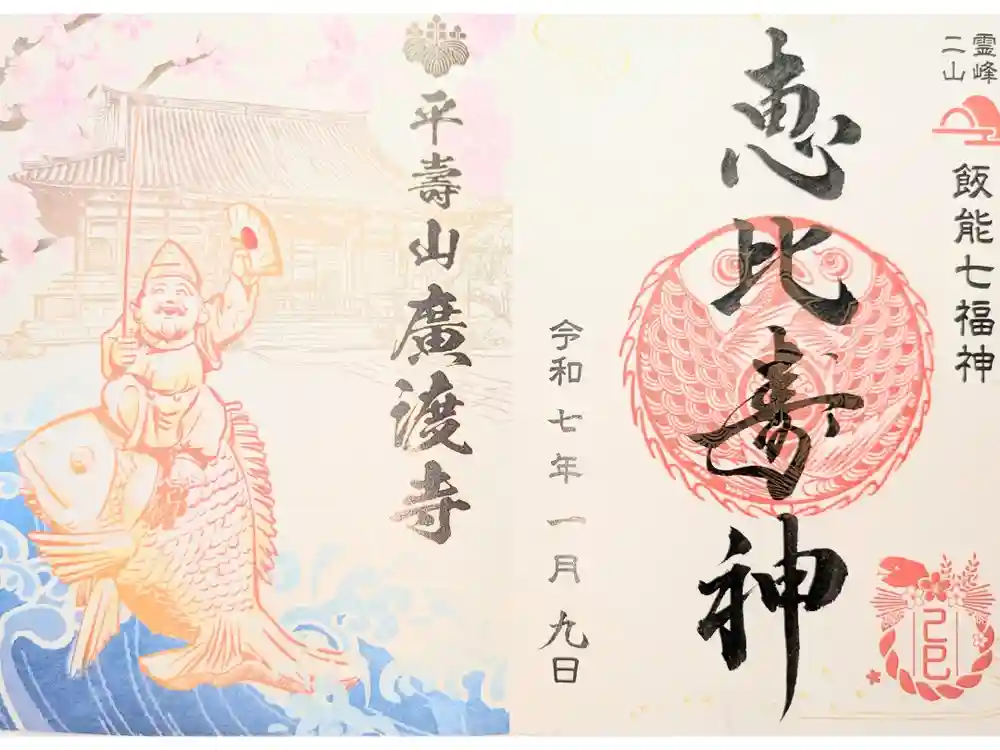 霊峰
二山
飯能七福神
恵比寿神
令和七年一月九日
平壽山廣渡寺
己巳